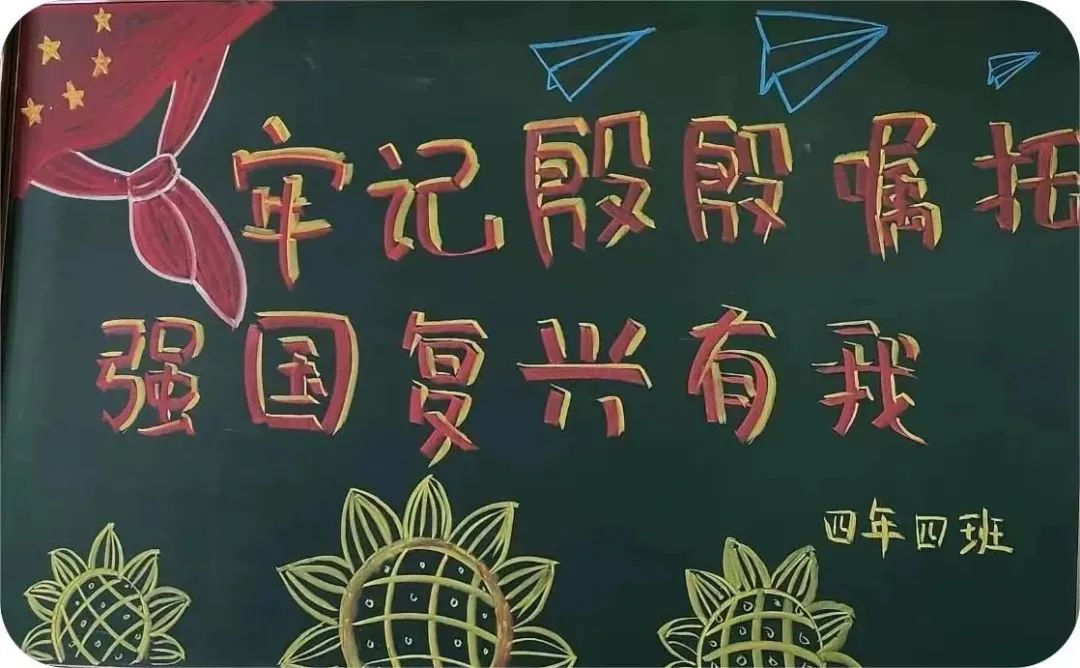 牢记殷殷嘱托
强国复兴有我
四年四班